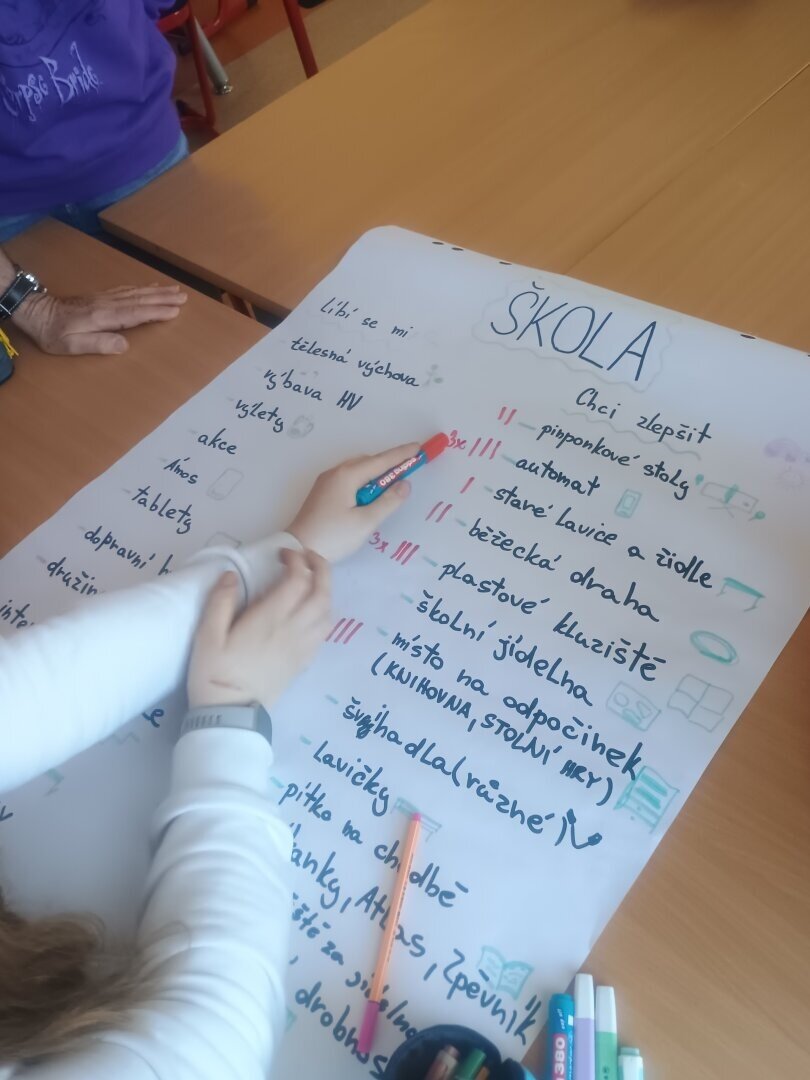 ŠKOLA
Líbí se mi
tělesná výchova
výbava HV
- výlety
- akce
- Ámos
- tablety
- dopravní
- družin
inte
Chci zlepšit
II - pinponkové stoly
3x III - automat
I - staré lavice a židle
II - běžecká draha
3x III - plastové kluziště
- školní jídelna
III - místo na odpočinek
(KNIHOVNA, STOLNÍ HRY)
- švyhadla (různé)
- Lavičky
- pítko na chodbě
Atlas, Zpěvník
za jídelnou
drobnos
edding 380
380
Corpse Bride